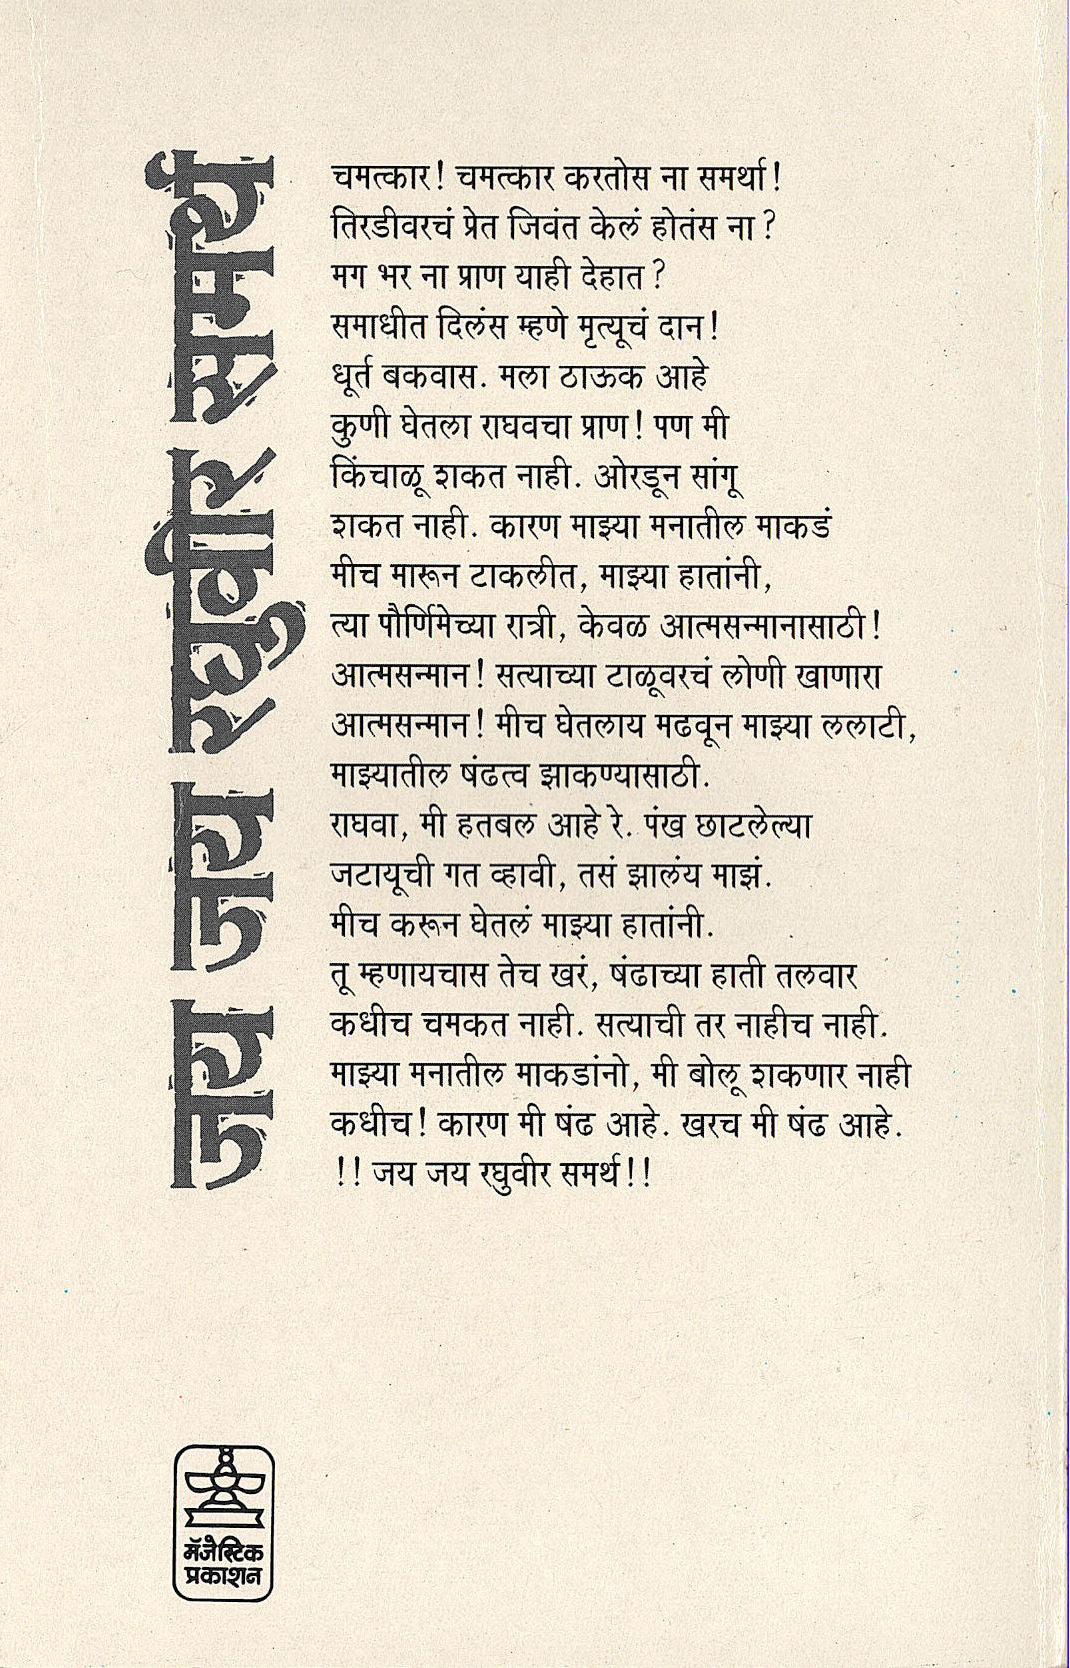 जय जय रघुवीर समर्थ
चमत्कार! चमत्कार करतोस ना समर्था!
तिरडीवरचं प्रेत जिवंत केलं होतंस ना?
मग भर ना प्राण याही देहात?
समाधीत दिलंस म्हणे मृत्यूचं दान!
धूर्त बकवास. मला ठाऊक आहे
कुणी घेतला राघवचा प्राण! पण मी
किंचाळू शकत नाही. ओरडून सांगू
शकत नाही. कारण माझ्या मनातील माकडं
मीच मारून टाकलीत, माझ्या हातांनी,
त्या पौर्णिमेच्या रात्री, केवळ आत्मसन्मानासाठी!
आत्मसन्मान! सत्याच्या टाळूवरचं लोणी खाणारा
आत्मसन्मान! मीच घेतलाय मढवून माझ्या ललाटी,
माझ्यातील षंढत्व झाकण्यासाठी.
राघवा, मी हतबल आहे रे. पंख छाटलेल्या
जटायूची गत व्हावी, तसं झालंय माझं.
मीच करून घेतलं माझ्या हातांनी.
तू म्हणायचास तेच खरं, षंढाच्या हाती तलवार
कधीच चमकत नाही. सत्याची तर नाहीच नाही.
माझ्या मनातील माकडांनो, मी बोलू शकणार नाही
कधीच! कारण मी षंढ आहे. खरच मी षंढ आहे.
!! जय जय रघुवीर समर्थ!!
मॅजेस्टिक
प्रकाशन